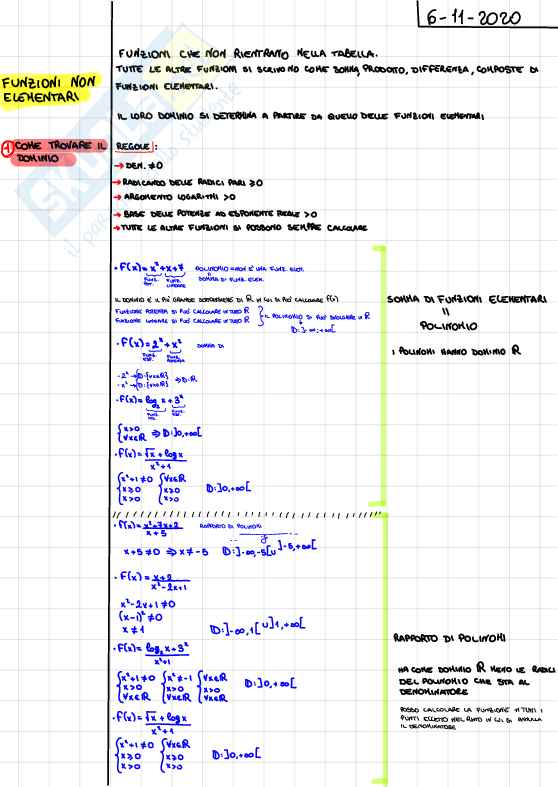 6-11-2020
FUNZIONI NON
ELEMENTARI
FUNZIONI CHE NON RIENTRANO NELLA TABELLA.
TUTTE LE ALTRE FUNZIONI SI SCRIVONO COME SOMMA, PRODOTTO, DIFFERENZA, COMPOSTE DI
FUNZIONI ELEMENTARI.
IL LORO DOMINIO SI DETERMINA A PARTIRE DA QUELLO DELLE FUNZIONI ELEMENTARI
1 COME TROVARE IL
DOMINIO
REGOLE:
→ DEN. ≠0
→ RADICANDO DELLE RADICI PARI ≥0
→ ARGOMENTO LOGARITMI >0
→ BASE DELLE POTENZE AD ESPONENTE REALE >0
→ TUTTE LE ALTRE FUNZIONI SI POSSONO SEMPRE CALCOLARE
• F(x)= x²+x+7 POLINOMIO = NON È UNA FUNZ. ELEM.
SOMMA DI FUNZ. ELEM.
IL DOMINIO È IL PIÙ GRANDE SOTTOINSIEME DI ℝ IN CUI SI PUÒ CALCOLARE F(x)
FUNZIONE POTENZA SI PUÒ CALCOLARE IN TUTTO ℝ
FUNZIONE LINEARE SI PUÒ CALCOLARE IN TUTTO ℝ
IL POLINOMIO SI PUÒ CALCOLARE IN ℝ
D:]-∞,+∞[
• F(x)= 2ˣ+x² SOMMA DI
- 2ˣ → D:{∀x∈ℝ}
- x² → D:{∀x∈ℝ} ⇒ D:ℝ
• F(x)= log₂ x+3ˣ
{x>0
{∀x∈ℝ ⇒ D:]0,+∞[
• F(x)= √x + log x
x²+1
{x²+1≠0 {∀x∈ℝ
{x≥0 {x≥0 D:]0,+∞[
{x>0 {x>0
SOMMA DI FUNZIONI ELEMENTARI
=
POLINOMIO
I POLINOMI HANNO DOMINIO ℝ
• F(x)= x²-7x+2 RAPPORTO DI POLINOMI
x+5
x+5≠0 ⇒ x≠-5 D:]-∞,-5[∪]-5,+∞[
• F(x)= x+2
x²-2x+1
x²-2x+1≠0
(x-1)²≠0
x≠1 D:]-∞,1[∪]1,+∞[
• F(x)= log₂ x+3ˣ
x²+1
{x²+1≠0 {x²≠-1 {∀x∈ℝ
{x>0 {x>0 {x>0 D:]0,+∞[
{∀x∈ℝ {∀x∈ℝ {∀x∈ℝ
• F(x)= √x + log x
x²+1
{x²+1≠0 {∀x∈ℝ
{x≥0 {x≥0 D:]0,+∞[
{x>0 {x>0
RAPPORTO DI POLINOMI
HA COME DOMINIO ℝ MENO LE RADICI
DEL POLINOMIO CHE STA AL
DENOMINATORE
POSSO CALCOLARE LA FUNZIONE IN TUTTI I
PUNTI ECCETTO NEL PUNTO IN CUI SI ANNULLA
IL DENOMINATORE